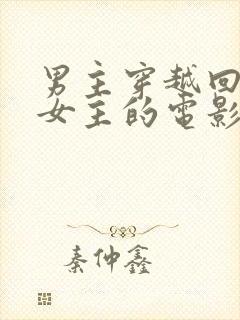 男主穿越回
女主的電影
秦仲鑫